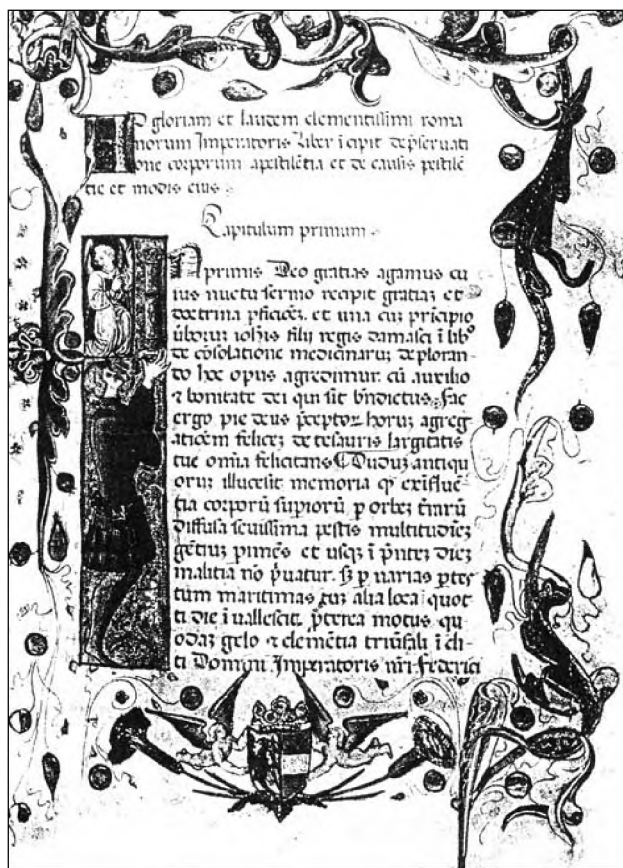 AD gloriam et laudem clementissimi roma
norum Imperatoris Liber ĩcipit de p̃seruati
one corporum apestilẽtia et de causis pestilẽ
tie et modis eius
Capitulum primum
IN primis Deo gratias agamus cu
ius nuctu sermo recipit gratiaʒ et
doctrina pficiẽʒ. et una cuʒ pricipio
ũboruʒ ioħis filij regis damasci ĩ libº
de cõsolatione medicinaruʒ deploran
do hoc opus agredimur. cũ auxilio
⁊ bonitate dei qui sit bñdictus. fac
ergo pie deus p̃ceptor horuʒ agreg
aticẽm feliceʒ de tesauris largitatis
tue om̃ia felicitans Duduʒ antiqu
oruʒ illucesit memoria qʒ
tia corporũ supiorũ p orbeʒ t̃rrũ
diffusa seuissima pestis multitudiẽʒ
gẽtiuʒ et usqʒ ĩ p̃nteʒ dieʒ
malitia nõ p̃uatur. sʒ p uarias ptes
tum maritimas alia loca quot
ti die ĩuallescit. p̃terea motus qu
odaʒ gelo ⁊ clemẽtia triũfali ĩcli
ti Domini Imperatoris nr̃i Federici